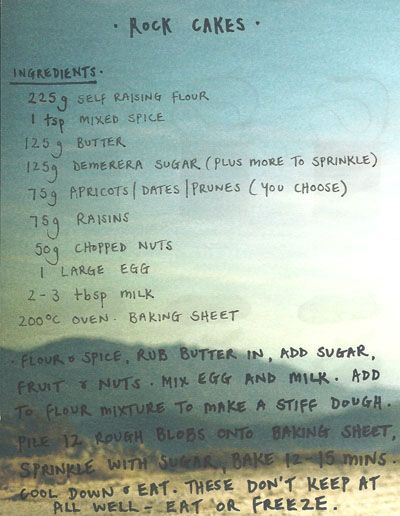 · ROCK CAKES ·
INGREDIENTS·
225g SELF RAISING FLOUR
1 tsp MIXED SPICE
125g BUTTER
125g DEMERERA SUGAR (PLUS MORE TO SPRINKLE)
75g APRICOTS/DATES/PRUNES (YOU CHOOSE)
75g RAISINS
50g CHOPPED NUTS
1 LARGE EGG
2-3 tbsp MILK
200°C OVEN. BAKING SHEET
· FLOUR & SPICE, RUB BUTTER IN, ADD SUGAR,
FRUIT & NUTS. MIX EGG AND MILK. ADD
TO FLOUR MIXTURE TO MAKE A STIFF DOUGH.
PILE 12 ROUGH BLOBS ONTO BAKING SHEET,
SPRINKLE WITH SUGAR, BAKE 12-15 MINS.
COOL DOWN & EAT. THESE DON'T KEEP AT
ALL WELL - EAT OR FREEZE.